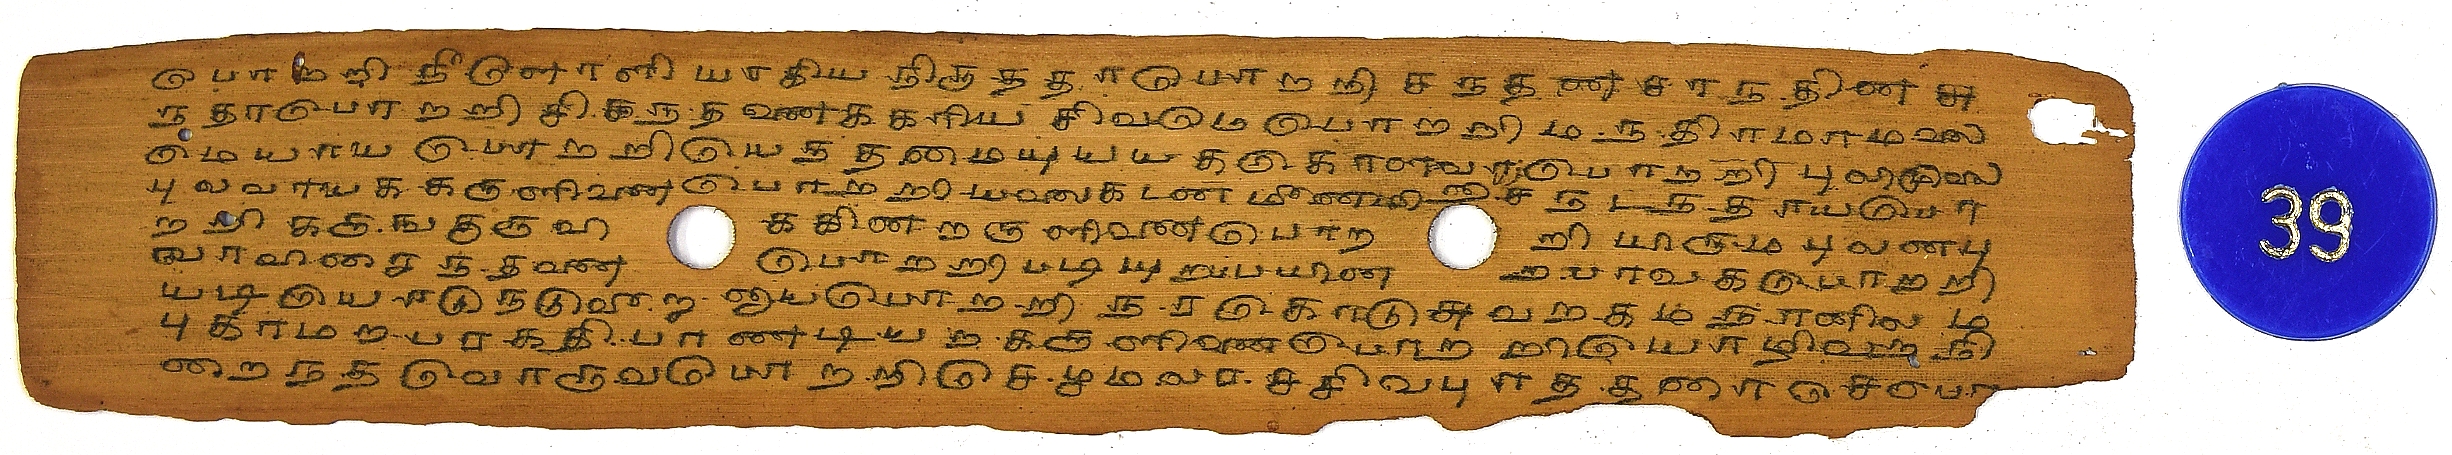 பொறறி நீடொளியாகிய நிருததாபொறறி சநதணசாநதிணசு
நதாபொறறி சிநதணைககரிய சிவமெபொறறி மநதிரமாமலை
மெயாய பொறறி யெநதமையுயயகொளவாபொறறி புலிமுலை
புலவாயககருளிணைபொறறி யலைகடண மிசைநடநதாயபொ
றறி கருஙகுருவி ககிணறருளிணைபொற றியிருமபுலணபு
லரவிசைநதணை பொறறி படியுறபபயிண றபாவகபொறறி
யடியொடுநடுவீறாயபொறறி நரகொடுசுவறகமநானிலம
புகாமறபரகதி பாணடியறகருளிணைபொறறி யொழிவறநி
றைநதவொருவபொறறி செழுமலரசசிவபுரததரைசெபொ
39